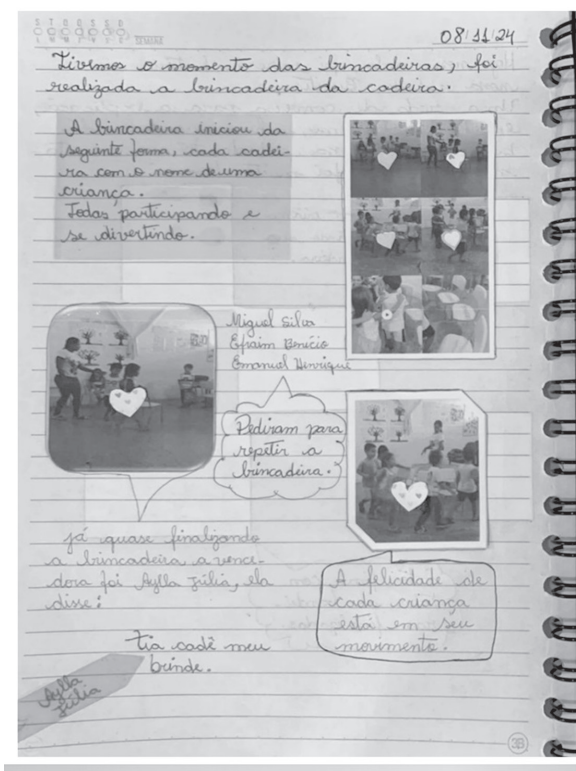 S T Q Q S S D
08/11/24
Tivemos o momento das brincadeiras, foi
realizada a brincadeira da cadeira.
A brincadeira iniciou da
seguinte forma, cada cadei-
ra com o nome de uma
criança.
Todas participando e
se divertindo.
Miguel Silva
Efraim Benício
Emanuel Henrique
Pediram para
repetir a
brincadeira.
já quase finalizando
a brincadeira a vence-
dora foi Aylla Júlia, ela
disse:
tia cadê meu
brinde.
A felicidade de
cada criança
está em seu
movimento.
Aylla
Júlia